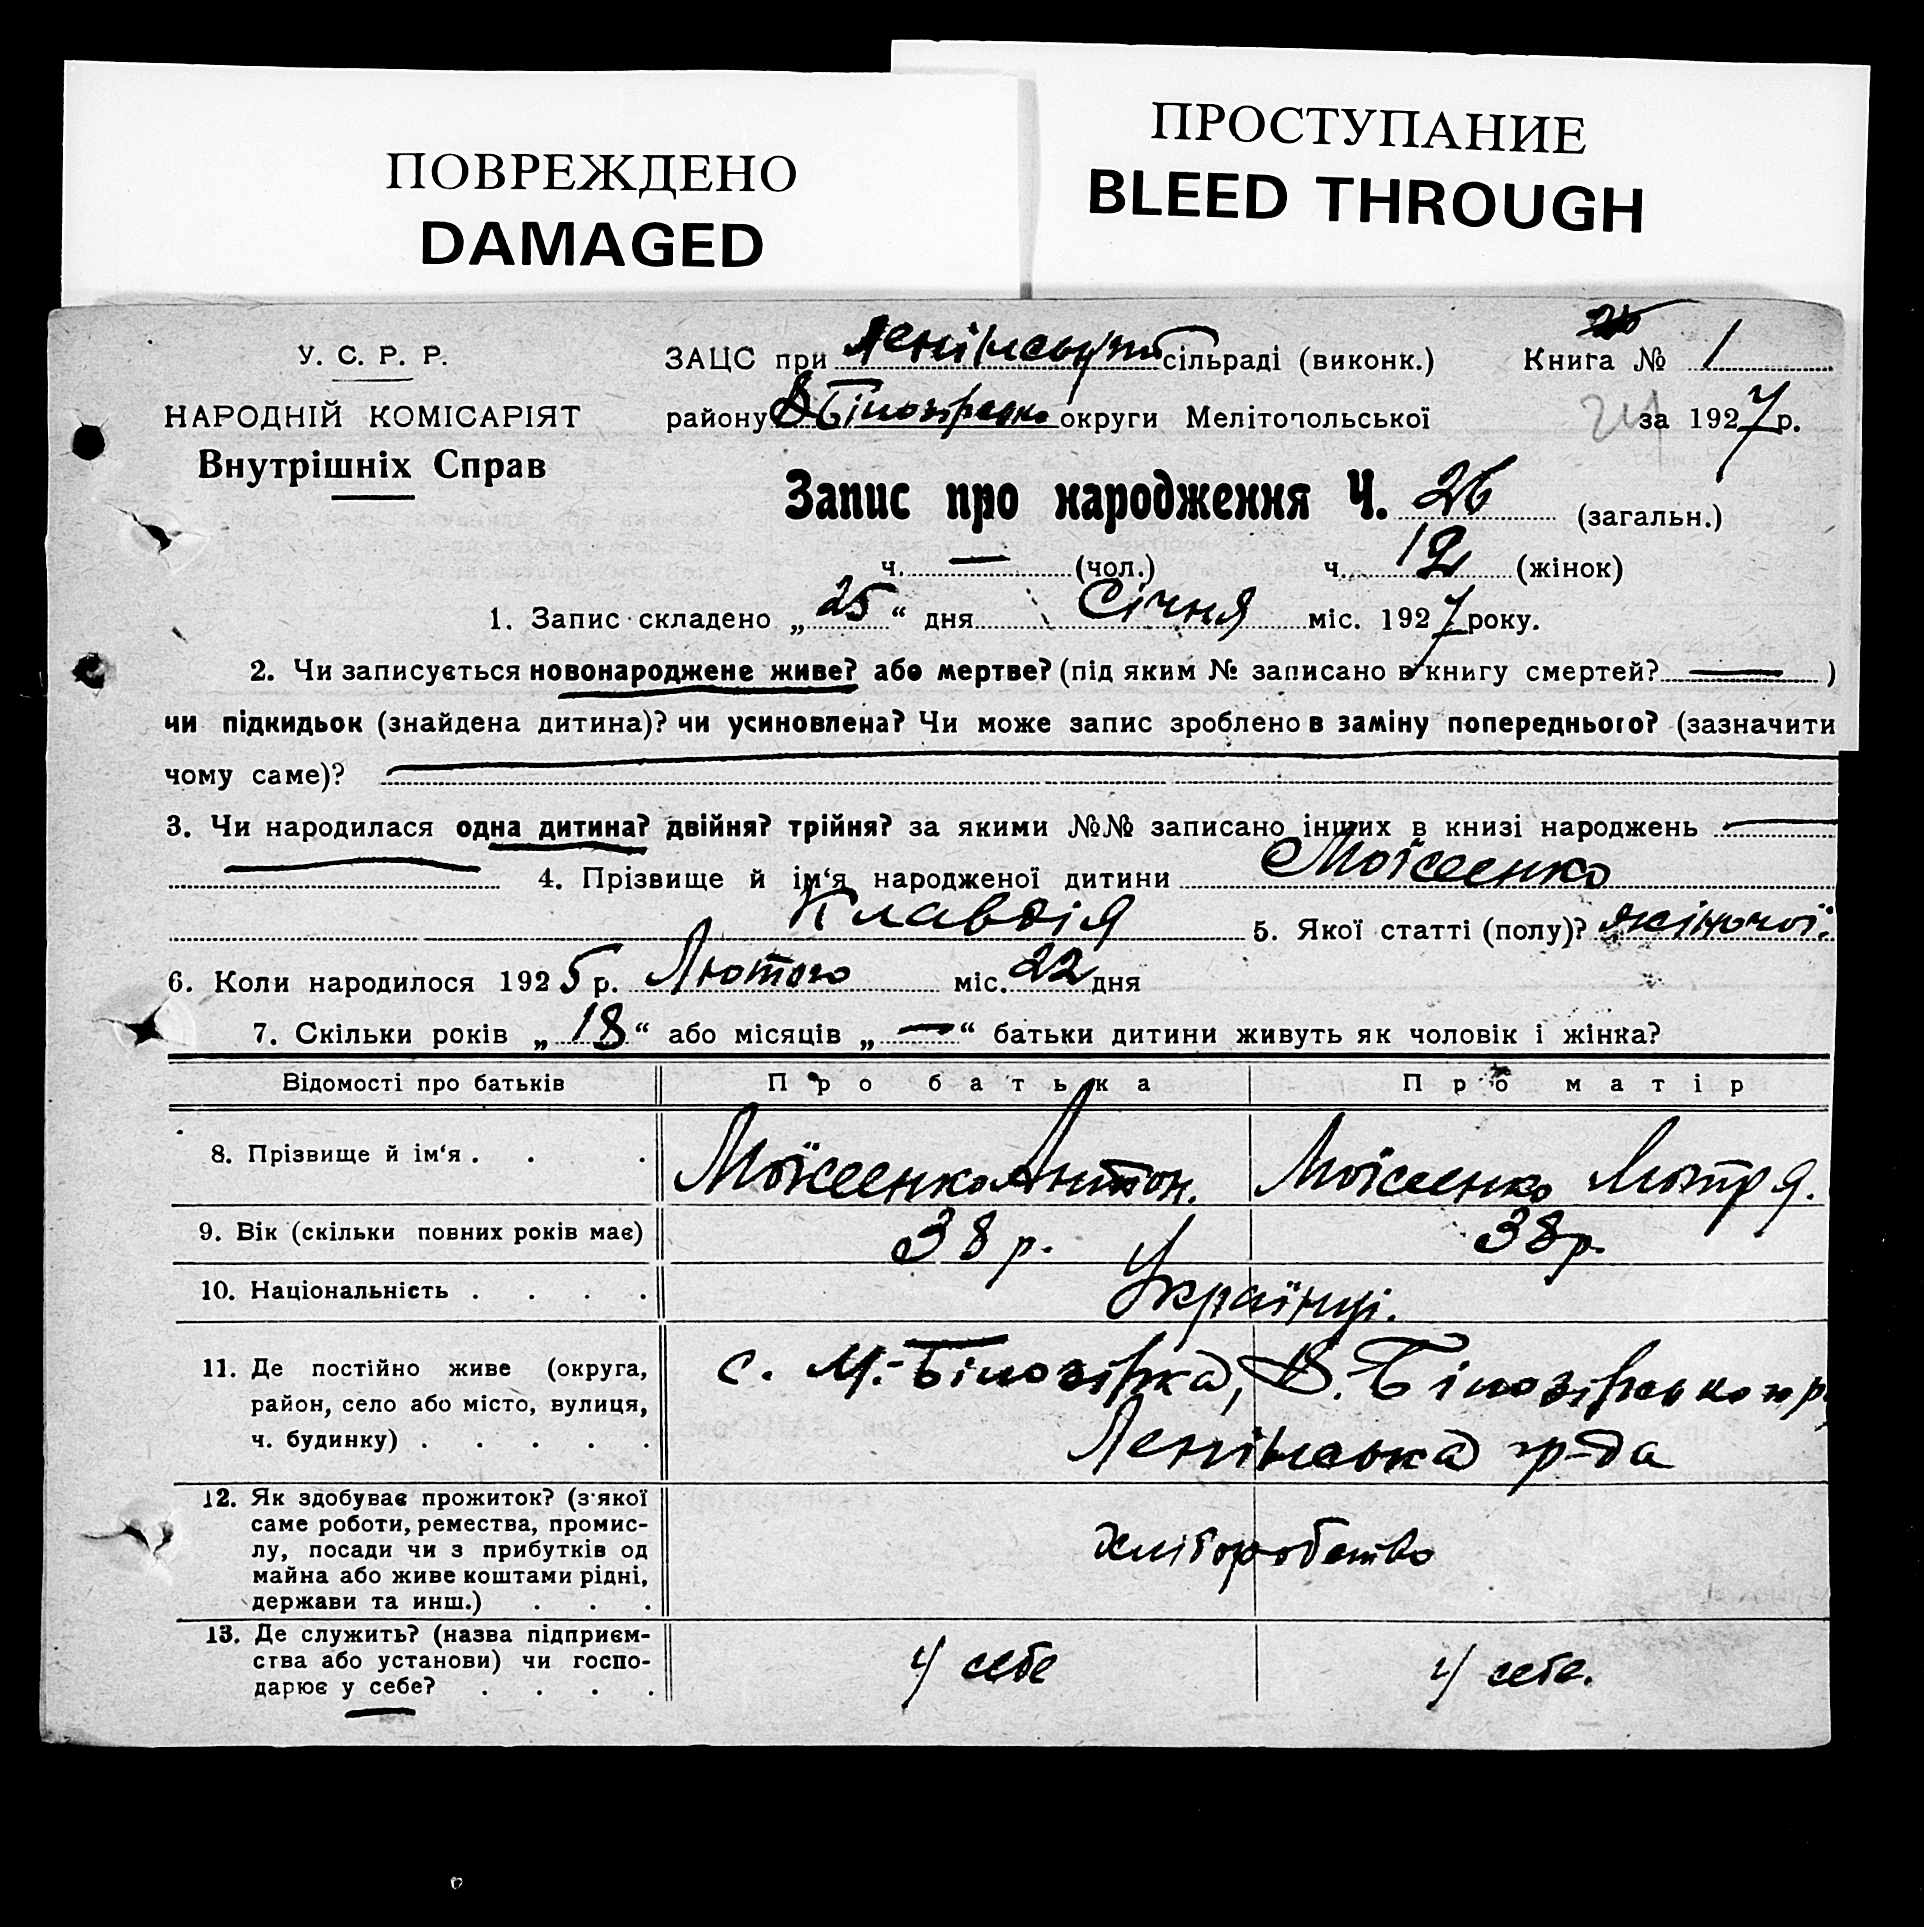 ПОВРЕЖДЕНО
DAMAGED
ПРОСТУПАНИЕ
BLEED THROUGH
У. С. Р. Р.
НАРОДНІЙ КОМІСАРІЯТ
Внутрішніх Справ
ЗАЦС при Ленінській сільраді (виконк.) Книга № 1
району В Білозірсько округи Мелітопольської за 1927 р.
Запис про народження Ч. 26 (загальн.)
ч. — (чол.) ч. 12 (жінок)
1. Запис складено „25“ дня Січня міс. 1927 року.
2. Чи записується новонароджене живе? або мертве? (під яким № записано в книгу смертей? — )
чи підкидьок (знайдена дитина)? чи усиновлена? Чи може запис зроблено в заміну попереднього? (зазначити
чому саме)?
3. Чи народилася одна дитина? двійня? трійня? за якими №№ записано інших в книзі народжень —
— 4. Прізвище й ім‘я народженої дитини Моїсеенко
Клавдія 5. Якої статті (полу)? жіночої.
6. Коли народилося 1925 р. Лютого міс. 22 дня
7. Скільки років „18“ або місяців „—“ батьки дитини живуть як чоловік і жінка?
Відомості про батьків Про батька Про матір
8. Прізвище й ім‘я . . . Моїсеенко Антон. Моїсеенко Мотря.
9. Вік (скільки повних років має) 38 р. 38 р.
10. Національність . . . . Українці.
11. Де постійно живе (округа,
район, село або місто, вулиця,
ч. будинку) . . . . .
с. М.-Білозірка, В. Білозірського р.
Ленінська гр-да
12. Як здобуває прожиток? (з якої
саме роботи, ремества, промис-
лу, посади чи з прибутків од
майна або живе коштами рідні,
держави та инш.) . . .
хліборобство
13. Де служить? (назва підприєм-
ства або установи) чи госпо-
дарює у себе? . . . .
у себе у себе.